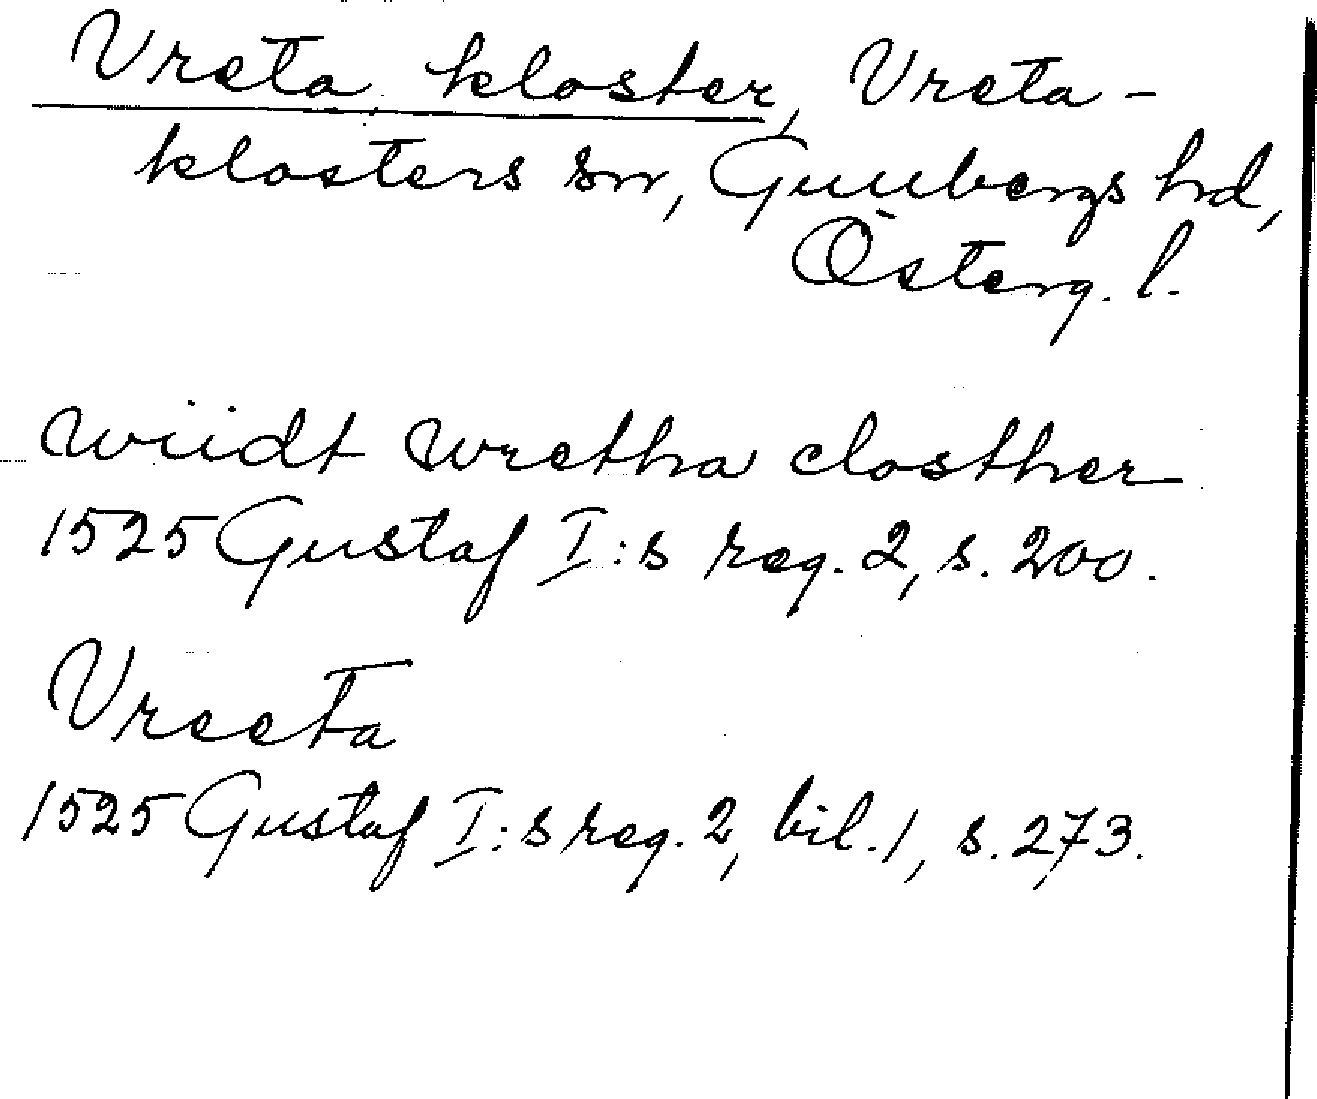 Vreta kloster, Vreta-
klosters sn, Gullbergs hd,
Österg. l.
Wiidt Wretha closther
1525 Gustaf I:s reg. 2, s. 200.
Vreeta
1525 Gustaf I:s reg. 2, bil. 1, s. 273.